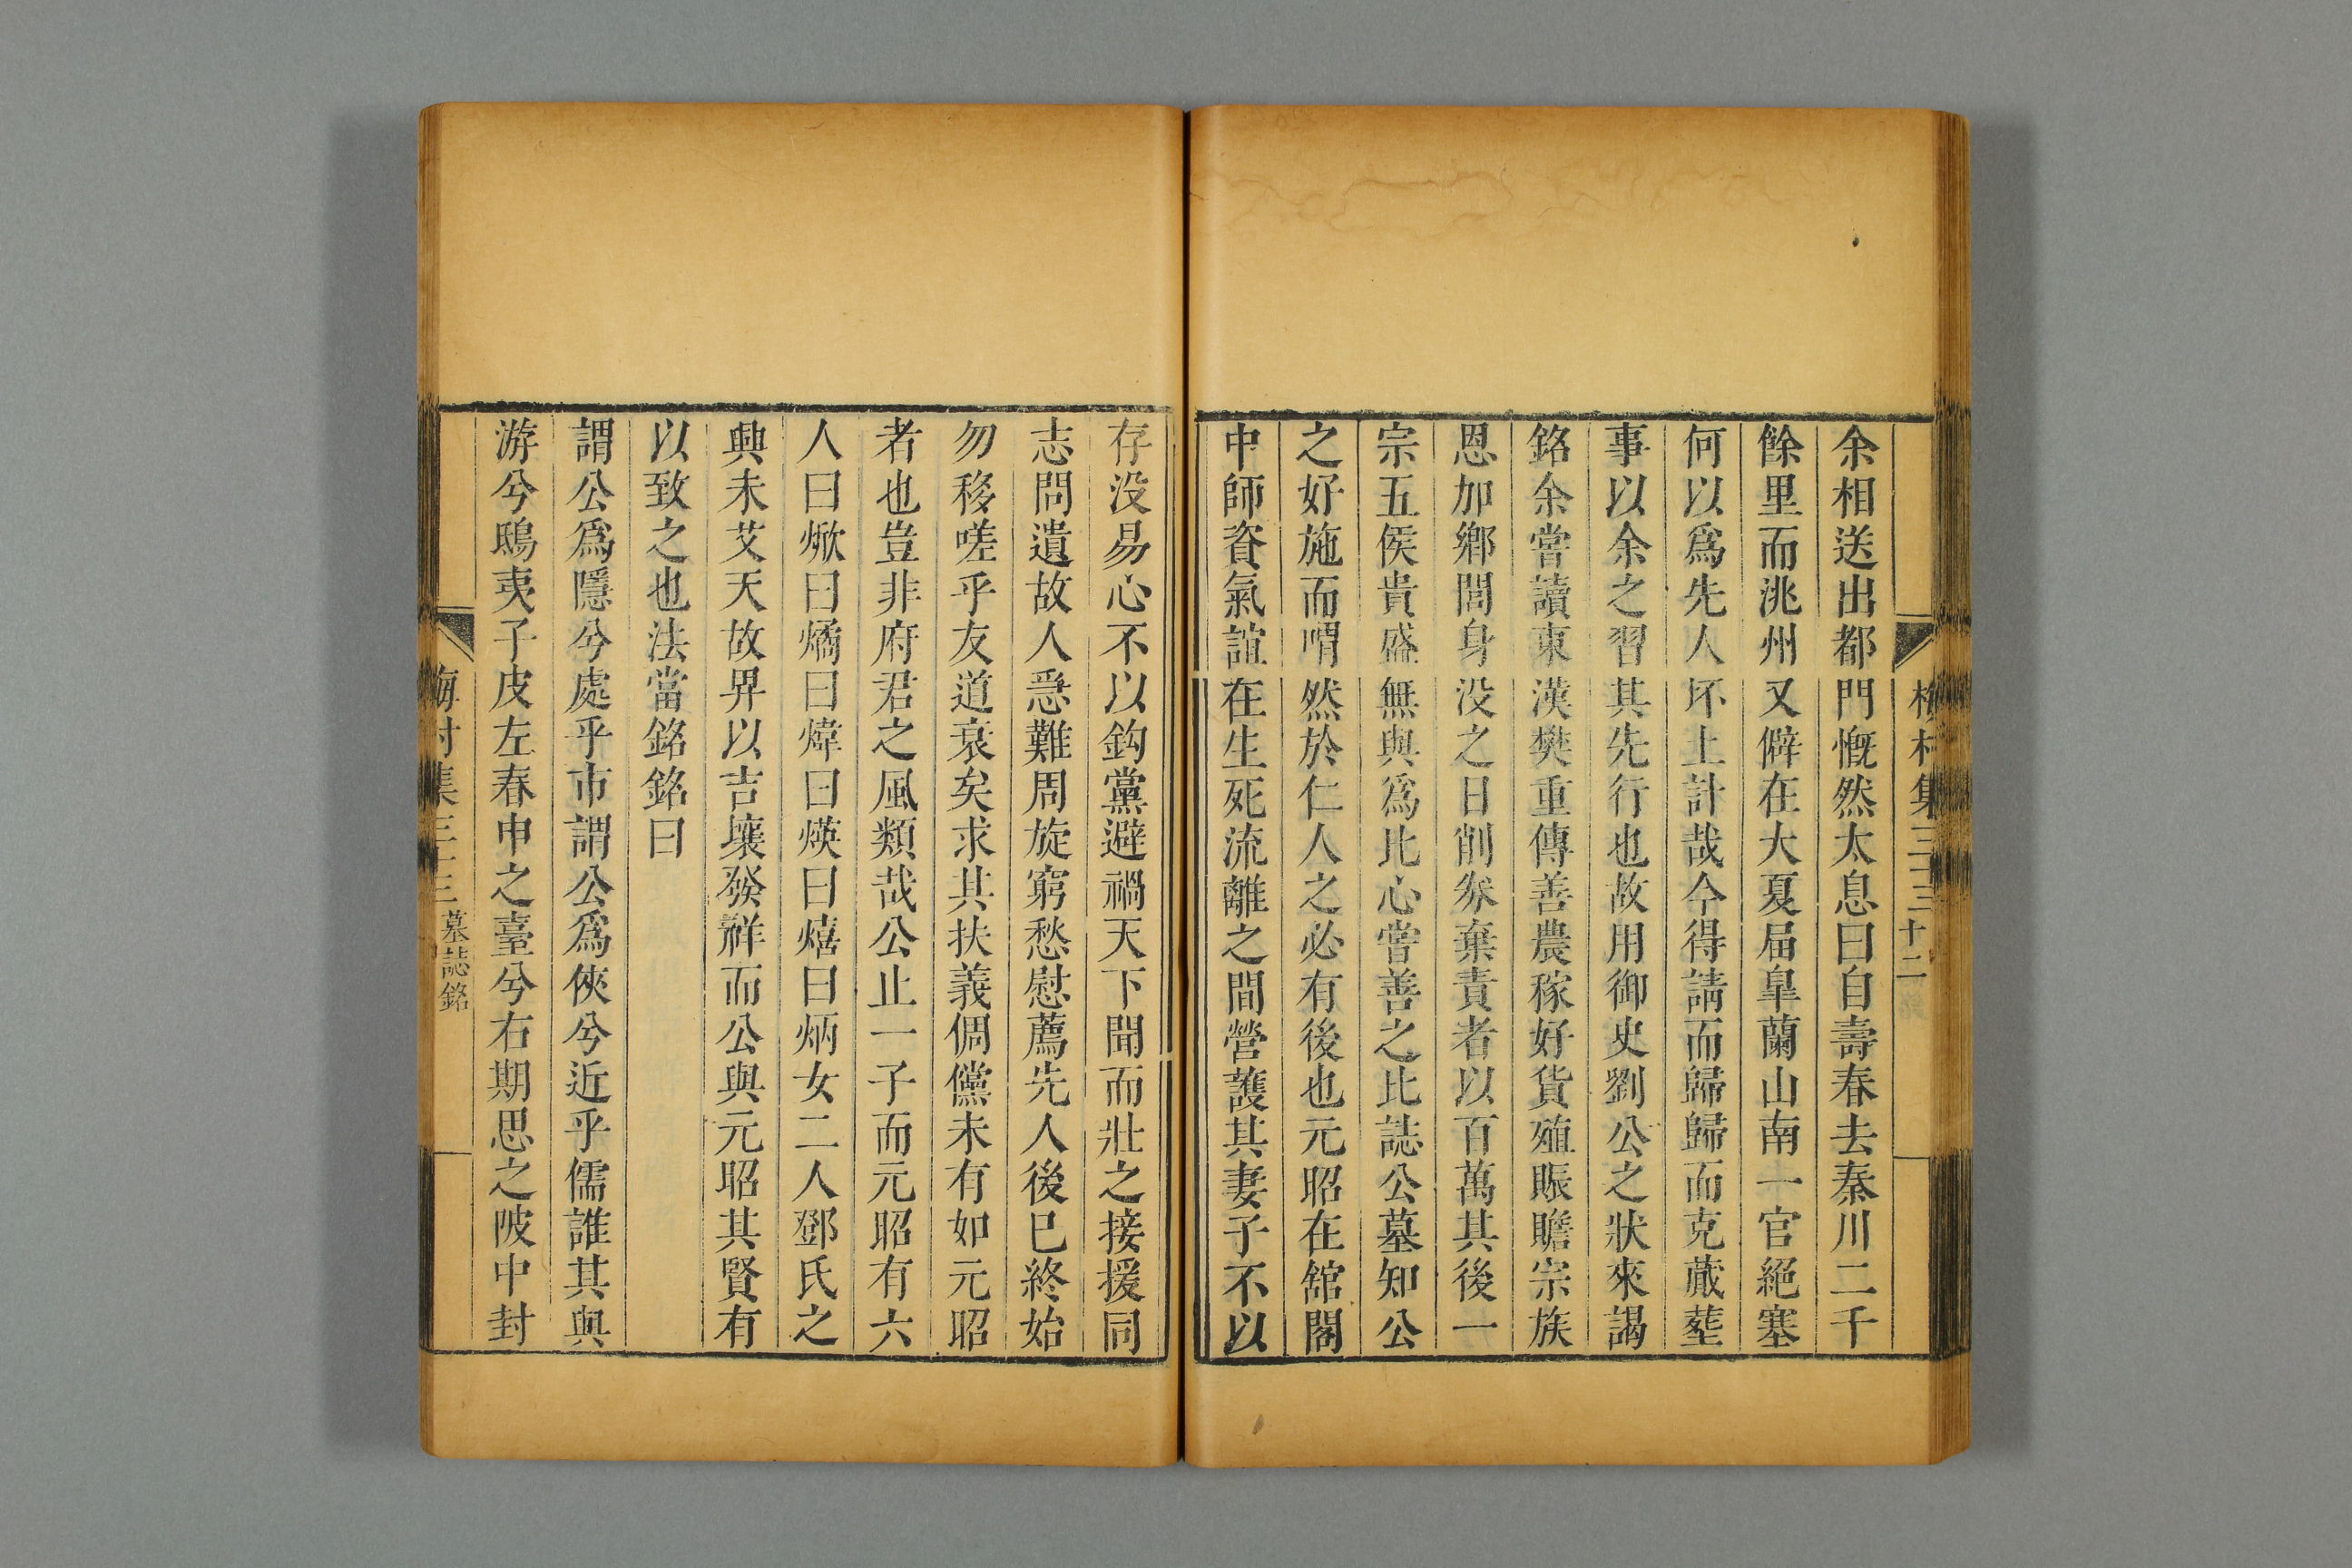 梅村集三十三 十二
余相送出都門慨然太息曰自壽春去秦川二千
餘里而洮州又僻在大夏屆臯蘭山南一官絕塞
何以爲先人坏土計哉今得請而歸歸而克蕆塟
事以余之習其先行也故用御史劉公之狀來謁
銘余嘗讀東漢樊重傳善農稼好貨殖賑贍宗族
恩加鄉閭身没之日削券棄責者以百萬其後一
宗五侯貴盛無與爲比心嘗善之比誌公墓知公
之好施而喟然於仁人之必有後也元昭在舘閣
中師資氣誼在生死流離之間營護其妻子不以
存没易心不以鈎黨避禍天下聞而壯之接援同
志問遺故人急難周旋窮愁慰薦先人後已終始
勿移嗟乎友道衰矣求其扶義倜儻未有如元昭
者也豈非府君之風類哉公止一子而元昭有六
人曰焮曰燏曰煒曰煐曰熺曰炳女二人鄧氏之
興未艾天故畀以吉壤發祥而公與元昭其賢有
以致之也法當銘銘曰
謂公爲隱兮處乎市謂公爲俠兮近乎儒誰其與
游兮鴟夷子皮左春申之臺兮右期思之陂中封
梅村集三十三 墓誌銘